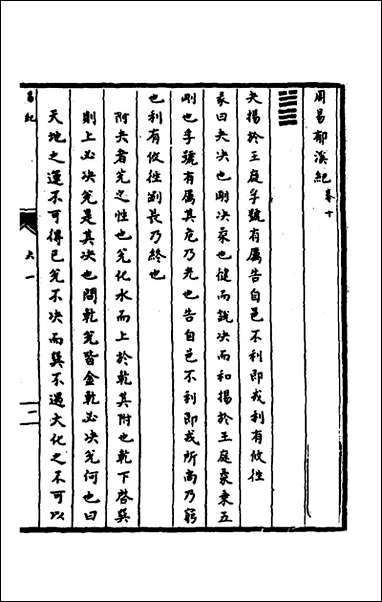 周易郁溪紀卷十
夬揚於王庭孚號有厲告自邑不利即戎利有攸往
彖曰夬決也剛決柔也健而說決而和揚於王庭柔乘五
剛也孚號有厲其危乃光也告自邑不利即戎所尚乃窮
也利有攸往剛長乃終也
附夬者兌之性也兌化水而上於乾其附也乾下啓巽
則上必決兌是其決也問乾兌皆金乾必決兌何也曰
天地之運不可得已兌不決而巽不遇大化之不可以
易紀
夬一